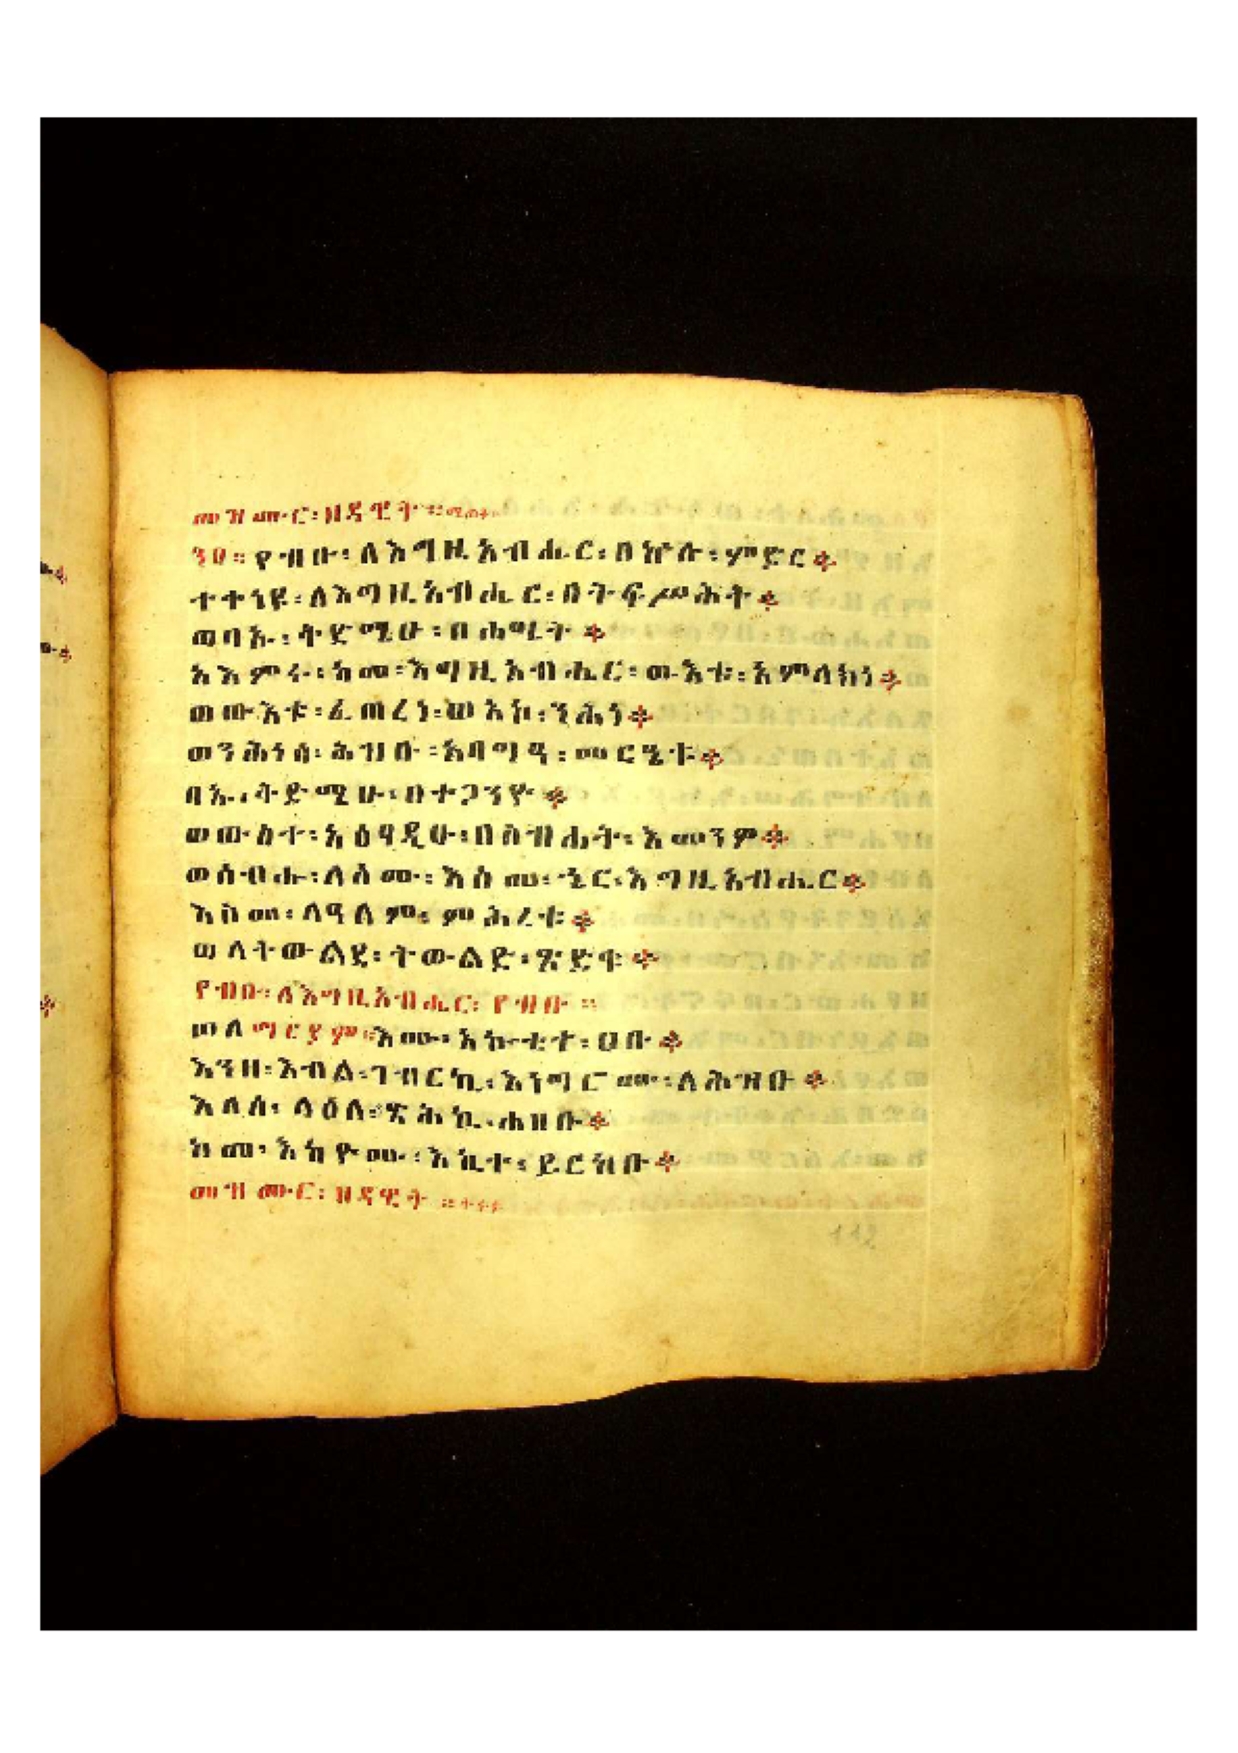 መዝሙር፡ዘዳዊት።
፺፱። የብቡ፡ለእግዚአብሔር፡በኵሉ፡ምድር
ተቀነዩ፡ለእግዚአብሔር፡በትፍሥሕት
ወባኡ፡ቅድሜሁ፡በሐሤት
አእምሩ፡ከመ፡እግዚአብሔር፡ውእቱ፡አምላክነ
ወውእቱ፡ፈጠረነ፡ወአኮ፡ንሕነ
ወንሕነሰ፡ሕዝቡ፡አባግዓ፡መርዔቱ
ባኡ፡ቅድሜሁ፡በተጋንዮ
ወውስተ፡አዕፃዲሁ፡በስብሐት፡እመንም
ወሰብሑ፡ለስሙ፡እስመ፡ኄር፡እግዚአብሔር
እስመ፡ለዓለም፡ምሕረቱ
ወለትውልደ፡ትውልድ፡ጽድቁ
የብቡ፡ለእግዚአብሔር፡የብቡ።
ወለማርያም፡እሙ፡አኰቴተ፡ሀቡ
እንዘ፡እብል፡ገብርኪ፡እነግሮሙ፡ለሕዝቡ
እለሰ፡ላዕለ፡ጽሕኪ፡ሐዘቡ
ከመ፡እከዮሙ፡እኪተ፡ይርከቡ
መዝሙር፡ዘዳዊት።